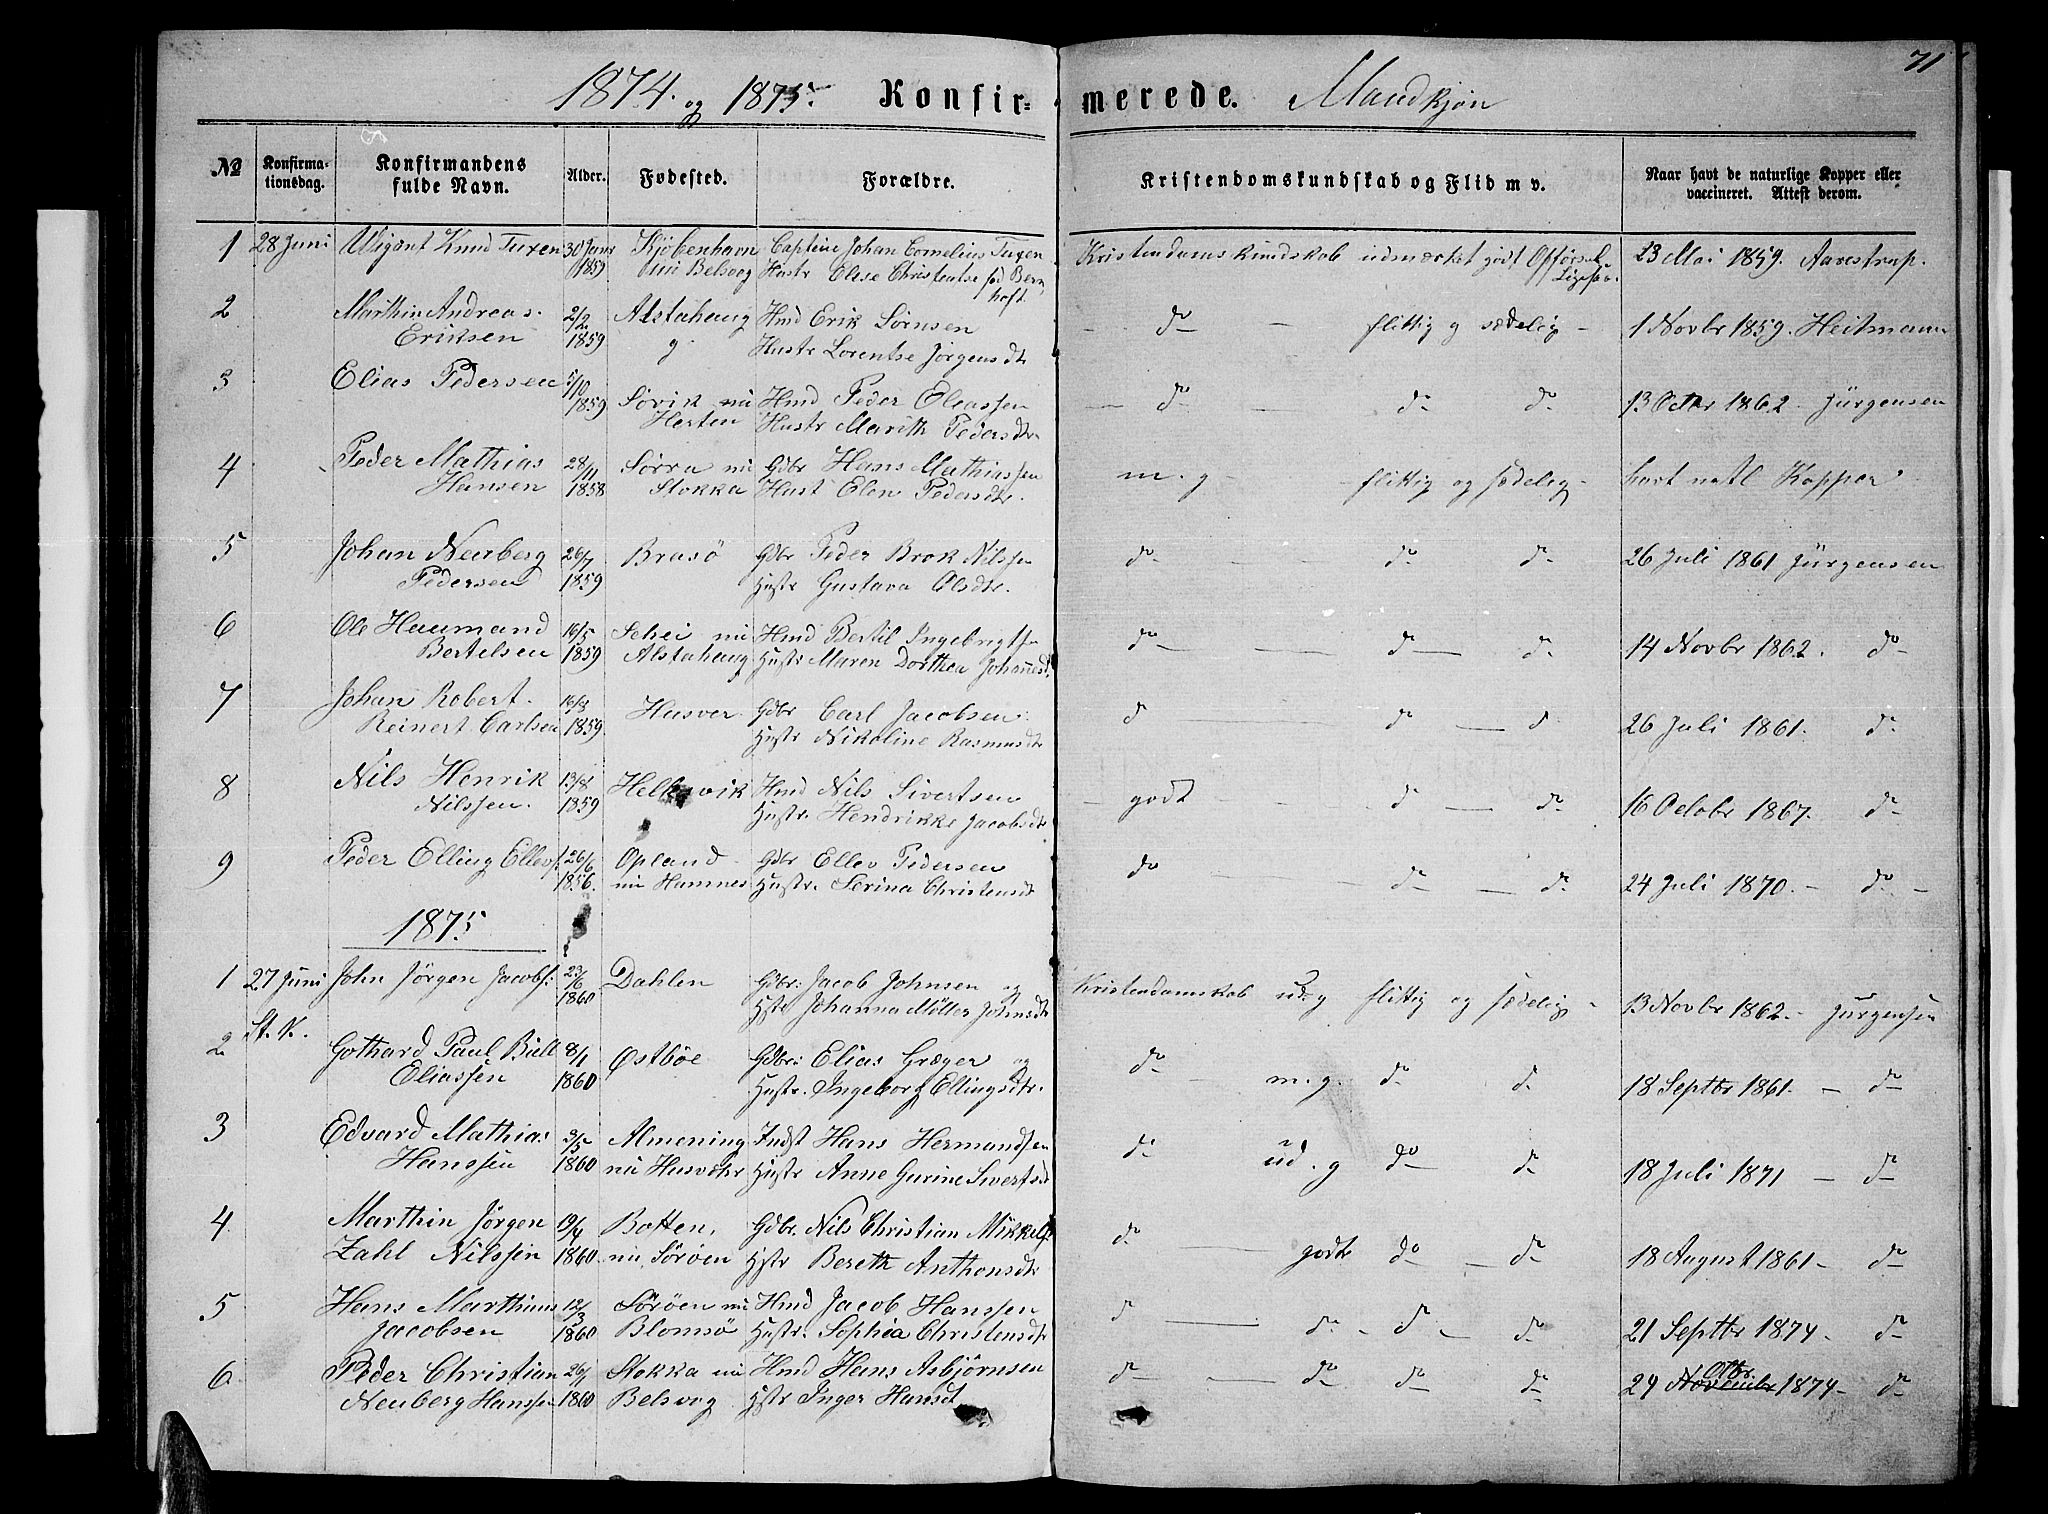 71
1874. og 1875. Konfir- merede. Mandkjøn
No Konfirma- tionsdag. Konfirmandens fulde Navn. Alder. Fødested. Forældre. Kristendomskundskab og Flid m v. Naar havt de naturlige Kopper eller vaccineret. Attest derom.
1 28 Juni Wigant Knud Tuxen 30 Janr Kjøbenhavn Captein Johan Cornelius Tuxen Kristendomskundskab udmærket godt Opførsel 23 Mai 1859. Aarestrup.
1859 Belsvog Hustr Christentse fød Bern
hoft Ligesaa.
2 Marthin Andreas 2/2 Alstahaug Hmd Erik Sørnsen do flittig og sædelig 1 Novbr 1859. Heitmann
Eriksen 1859 g. Hustr Lorentse Jørgensdtr
3 Elias Pedersen 5/10 1859 Søvik nu Hmd Peder Eleassen do do do 13 Octbr 1862 Jürgensen
Herten Hustr Marith Pedersdtr.
4 Peder Mathias 28/11 Sørra nu Gdbr Hans Mathiassen m. g flittig og sædelig havt natl Kopper
Hansen 1858 Stokka Hust Elen Pedersdtr.
5 Johan Neuberg 26/7 Brasø Gdbr Peder Brok Nilssen do do do 26 Juli 1861 Jürgensen
Pedersen 1859 Hustr Gustava Olsdtr.
6 Ole Haumand 16/5 Schei nu Hmd Bertil Ingebrigts do do do 14 Novbr 1862. do
Bertelsen 1859 Alstahaug Hustr Maren Dorthea Johannesd.
7 Johan Robert 16/8 Husver Gdbr Carl Jacobsen do do do 26 Juli 1861. do
Reinert Carlsen 1859 Hustr Nikoline Rasmusdtr
8 Nils Henrik 13/8 Helhsvik Hmd Nils Sivertsen godt do do 16 Octobr 1867. do
Nilssen. 1859 Hustr. Hendrikke Jacobsdtr
9 Peder Elling Ellevs. 26/6 Opland Gdbr Ellev Pedersen do do do 24 Juli 1870. do
1856. nu Hamnes Hustr. Serina Christensdt
1875
1 27 Juni John Jørgen Jacobs: 23/6 Dahlen Gdbr: Jacob Johnsen og Kristendomskab ud.g flittig og sædelig 13 Novbr 1862. Jürgensen
St. K. 1860 Hstr Johanna Möller Johnsdtr
2 Gothard Paul Bull 8/1 Østbøe Gdbr: Elias Græger og do m. g. do do 18 Septbr 1861. do
Eliassen 1860 Hustr. Ingeborg Ellingsdtr.
3 Edvard Mathias 3/5 Almening Indst Hans Hermandsen do ud. g do do 18 Juli 1871 do
Hanssen 1860 nu Husvær Hustr Anne Gurine Sivertsdt
4. Marthin Jørgen 19/4 Botten, Gdbr. Nils Christian Mikkels do godt do do 18 August 1861 do
Zahl Nilssen 1860 nu Sørøen Hstr Bereth Anthonsdtr
5 Hans Marthinus 12/3 Sørøen nu Hmd Jacob Hanssen do do do do 21 Septbr 1874. do
Jacobsen 1860 Blomsø Hustr. Sophia Christensdtr
6. Peder Christian 26/1 Stokka nu Hmd Hans Asbjørnsen do do do do 24 November Otbr 1874 do
Neuberg Hanssen 1860 Belsvog Hstr Inger Hansdt